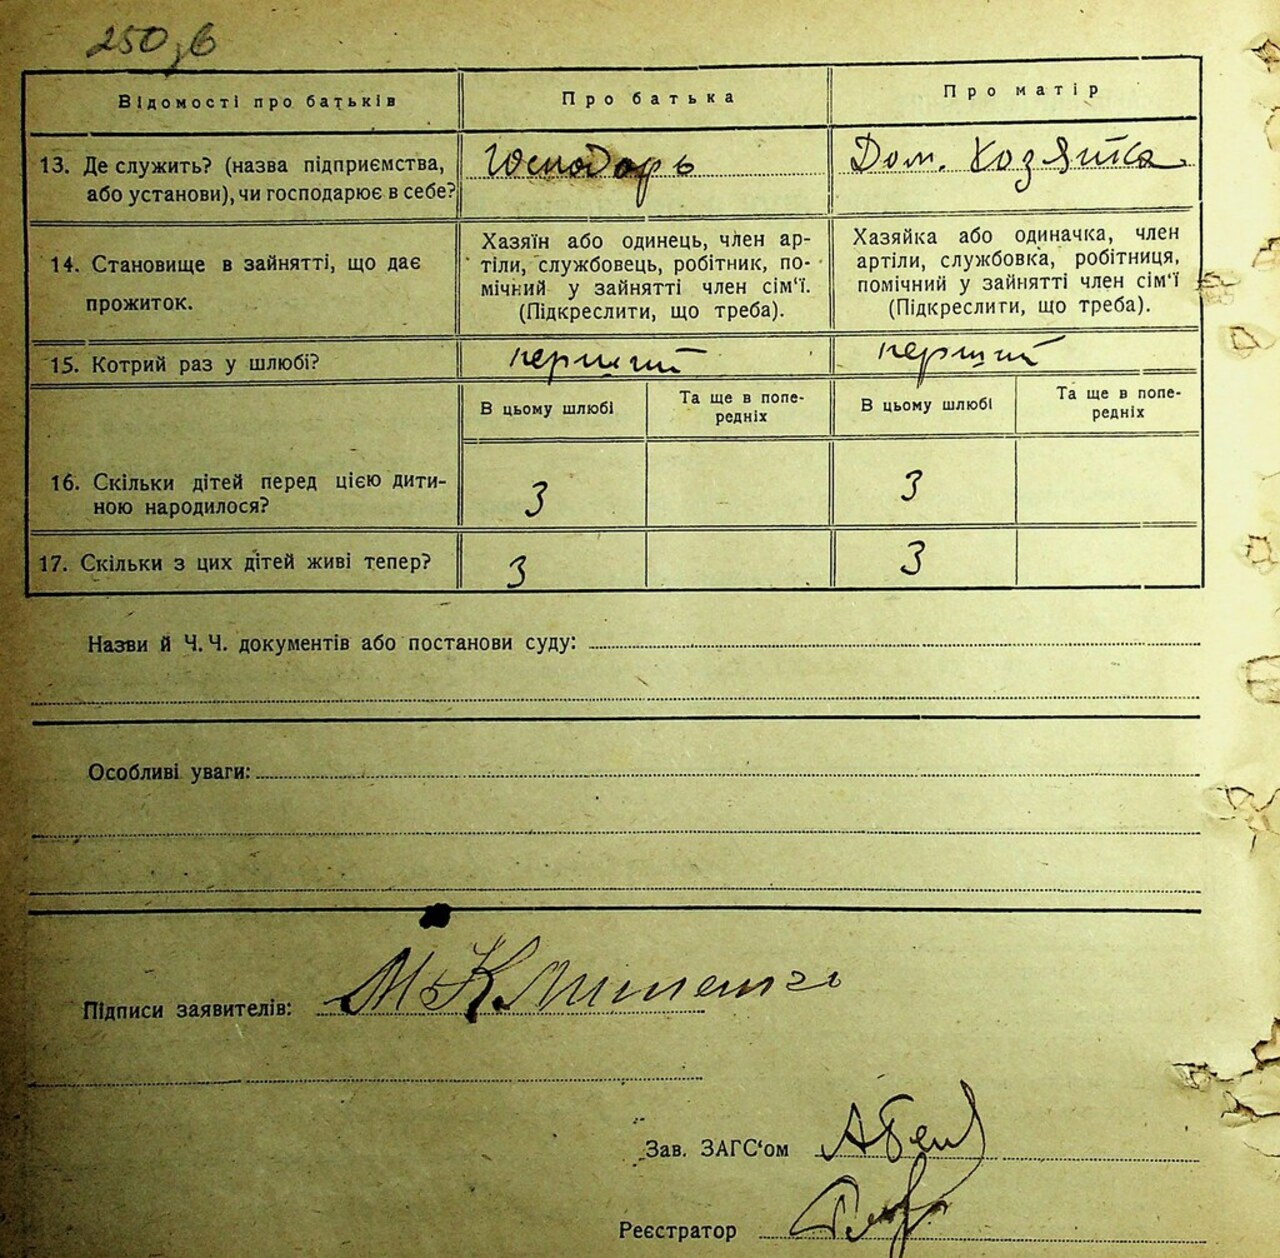 250 зв
Відомості про батьків
Про батька
Про матір
13. Де служить? (назва підприємства,
або установи), чи господарює в себе?
Господарь
Дом. Хозяйка
14. Становище в зайнятті, що дає
прожиток.
Хазяїн або одинець, член ар-
тіли, службовець, робітник, по-
мічний у зайнятті член сім'ї.
(Підкреслити, що треба).
Хазяйка або одиначка, член
артіли, службовка, робітниця,
помічний у зайнятті член сім'ї
(Підкреслити, що треба).
15. Котрий раз у шлюбі?
перший
перший
В цьому шлюбі
Та ще в попе-
редніх
В цьому шлюбі
Та ще в попе-
редніх
16. Скільки дітей перед цією дити-
ною народилося?
3
3
17. Скільки з цих дітей живі тепер?
3
3
Назви й Ч. Ч. документів або постанови суду:
Особливі уваги:
Підписи заявителів:
Зав. ЗАГС'ом
Реєстратор